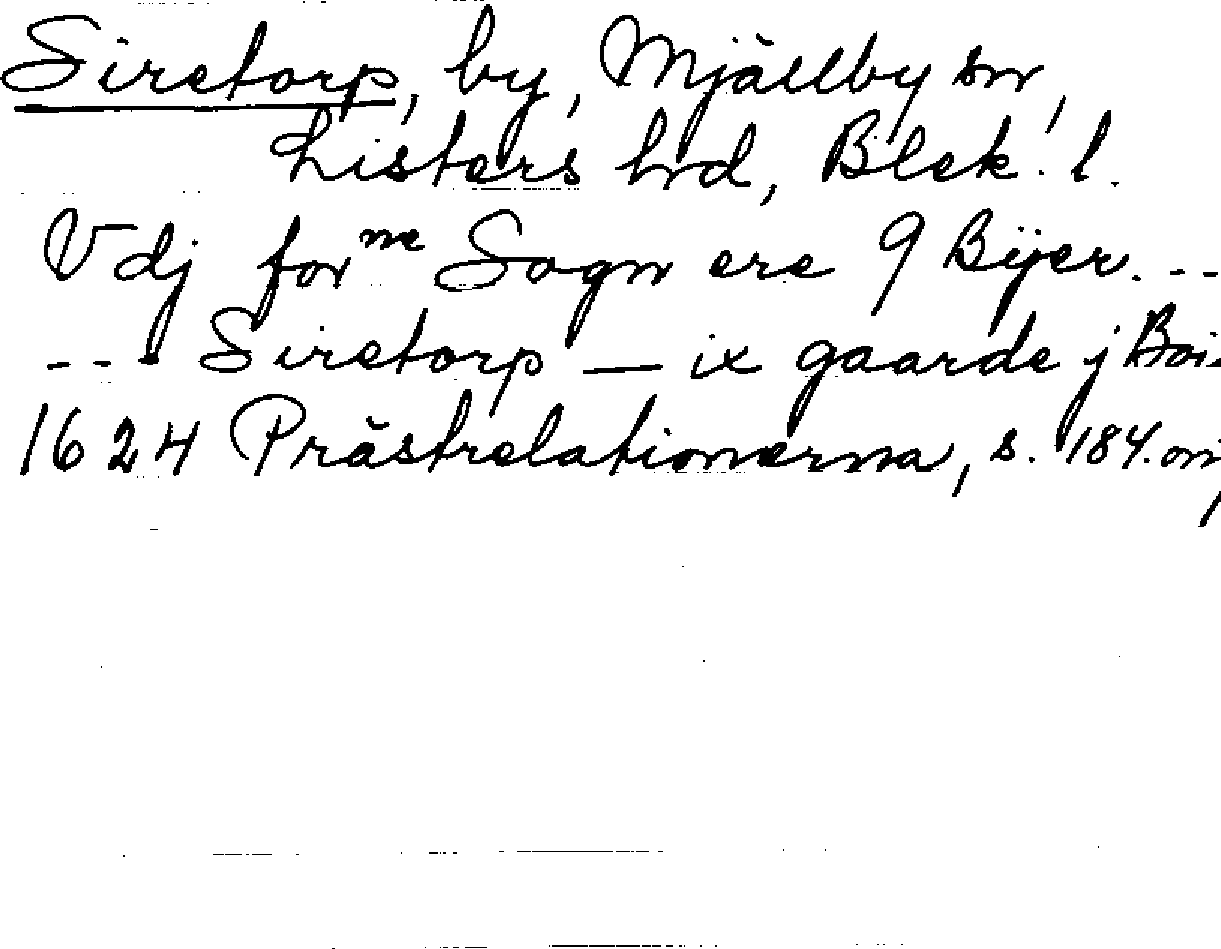 Siretorp, by, Mjällby sn,
Listers hrd, Blek. l.
Vdj for^ne Sogn ere 9 Bÿer. --
--- Siretorp — ix gaarde j
1624 Prästrelationerna, s. 184.